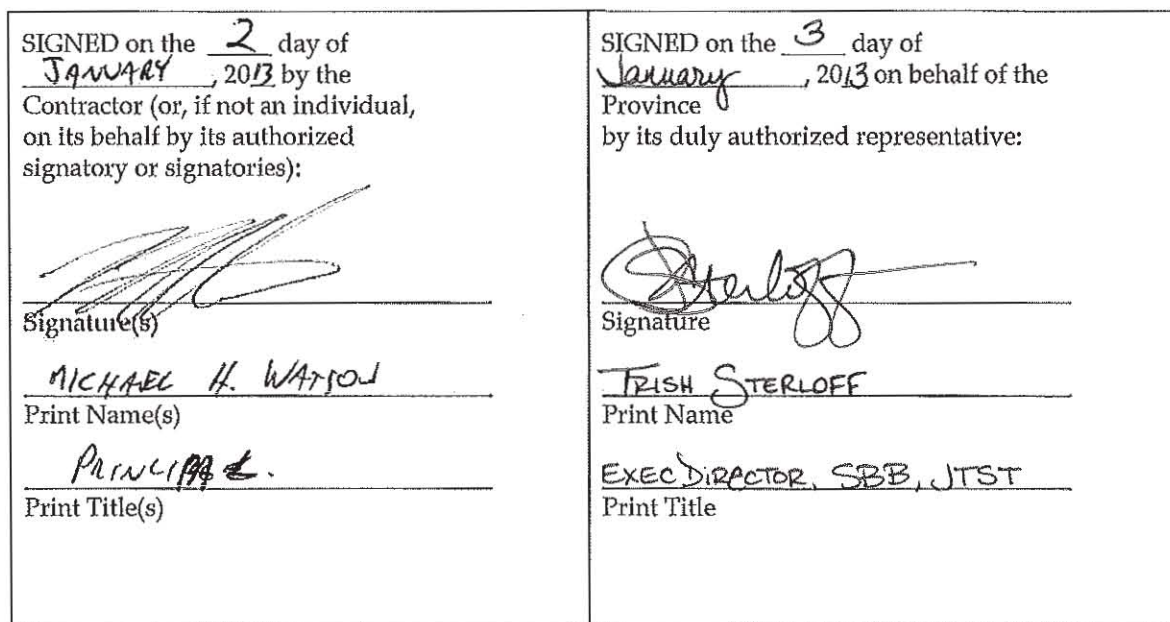 SIGNED on the 2 day of
JANUARY, 2013 by the
Contractor (or, if not an individual,
on its behalf by its authorized
signatory or signatories):
Signature(s)
MICHAEL H. WATSON
Print Name(s)
PRINCIPAL.
Print Title(s)
SIGNED on the 3 day of
January, 2013 on behalf of the
Province
by its duly authorized representative:
Sterloff
Signature
TRISH STERLOFF
Print Name
EXEC DIRECTOR, SBB, JTST
Print Title